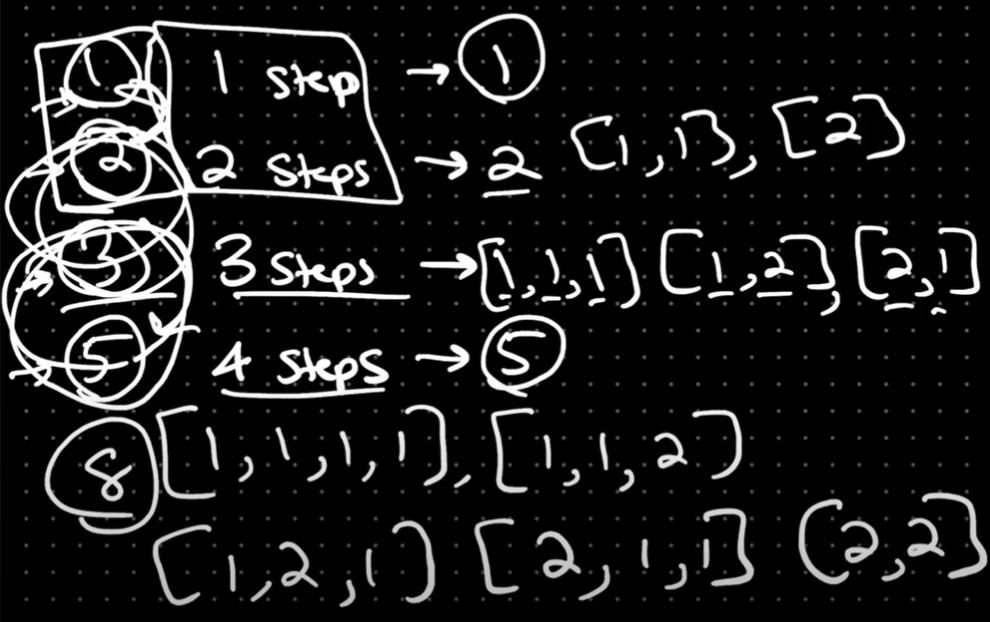 1 1 step → 1
2 2 Steps → 2 [1,1], [2]
3 3 Steps → [1,1,1] [1,2], [2,1]
5 4 Steps → 5
8 [1,1,1,1], [1,1,2]
[1,2,1] [2,1,1] [2,2]